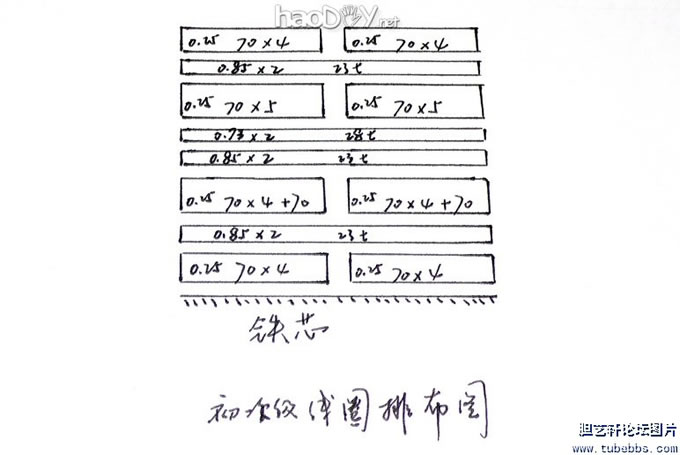 haoDIY.net
0.25 70×4 0.25 70×4
0.85×2 23t
0.25 70×5 0.25 70×5
0.73×2 28t
0.85×2 23t
0.25 70×4+70 0.25 70×4+70
0.85×2 23t
0.25 70×4 0.25 70×4
铁芯
初次级线圈排布图
胆艺轩论坛图片
www.tubebbs.com